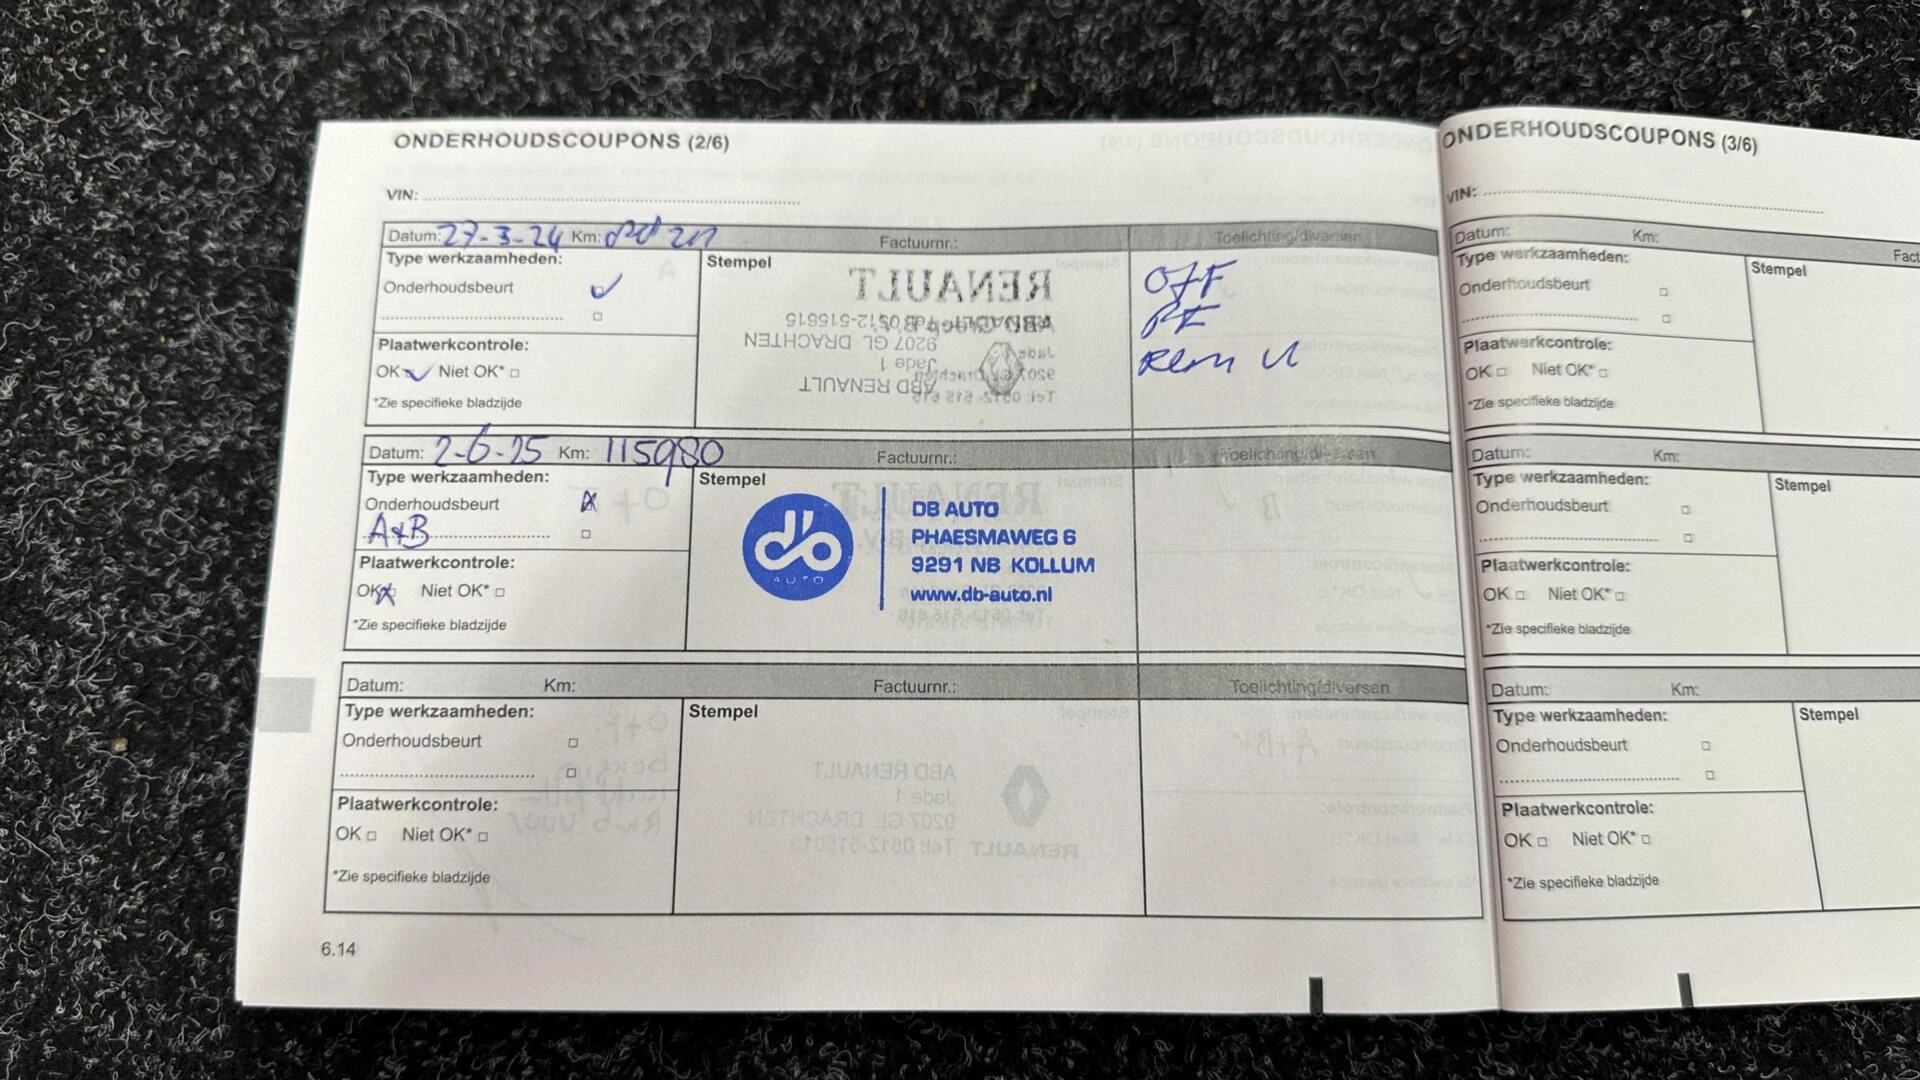 ONDERHOUDSCOUPONS (2/6)
VIN:
Datum: 27-3-24 Km: Factuurnr.: Toelichting/diversen
Type werkzaamheden:
Onderhoudsbeurt
Stempel
Plaatwerkcontrole:
OK Niet OK*
*Zie specifieke bladzijde
RENAULT
0512-515615
9207 GL DRACHTEN
Jade 1
ABD RENAULT
O+F
Rem
Datum: 2-6-25 Km: 115980 Factuurnr.: Toelichting/diversen
Type werkzaamheden:
Onderhoudsbeurt
A+B
Plaatwerkcontrole:
OK Niet OK*
*Zie specifieke bladzijde
Stempel
d'b
AUTO
DB AUTO
PHAESMAWEG 6
9291 NB KOLLUM
www.db-auto.nl
Datum: Km: Factuurnr.: Toelichting/diversen
Type werkzaamheden:
Onderhoudsbeurt
Plaatwerkcontrole:
OK Niet OK*
*Zie specifieke bladzijde
Stempel
6.14
ONDERHOUDSCOUPONS (3/6)
VIN:
Datum: Km: Fact
Type werkzaamheden:
Onderhoudsbeurt
Plaatwerkcontrole:
OK Niet OK*
*Zie specifieke bladzijde
Stempel
Datum: Km:
Type werkzaamheden:
Onderhoudsbeurt
Plaatwerkcontrole:
OK Niet OK*
*Zie specifieke bladzijde
Stempel
Datum: Km:
Type werkzaamheden:
Onderhoudsbeurt
Plaatwerkcontrole:
OK Niet OK*
*Zie specifieke bladzijde
Stempel